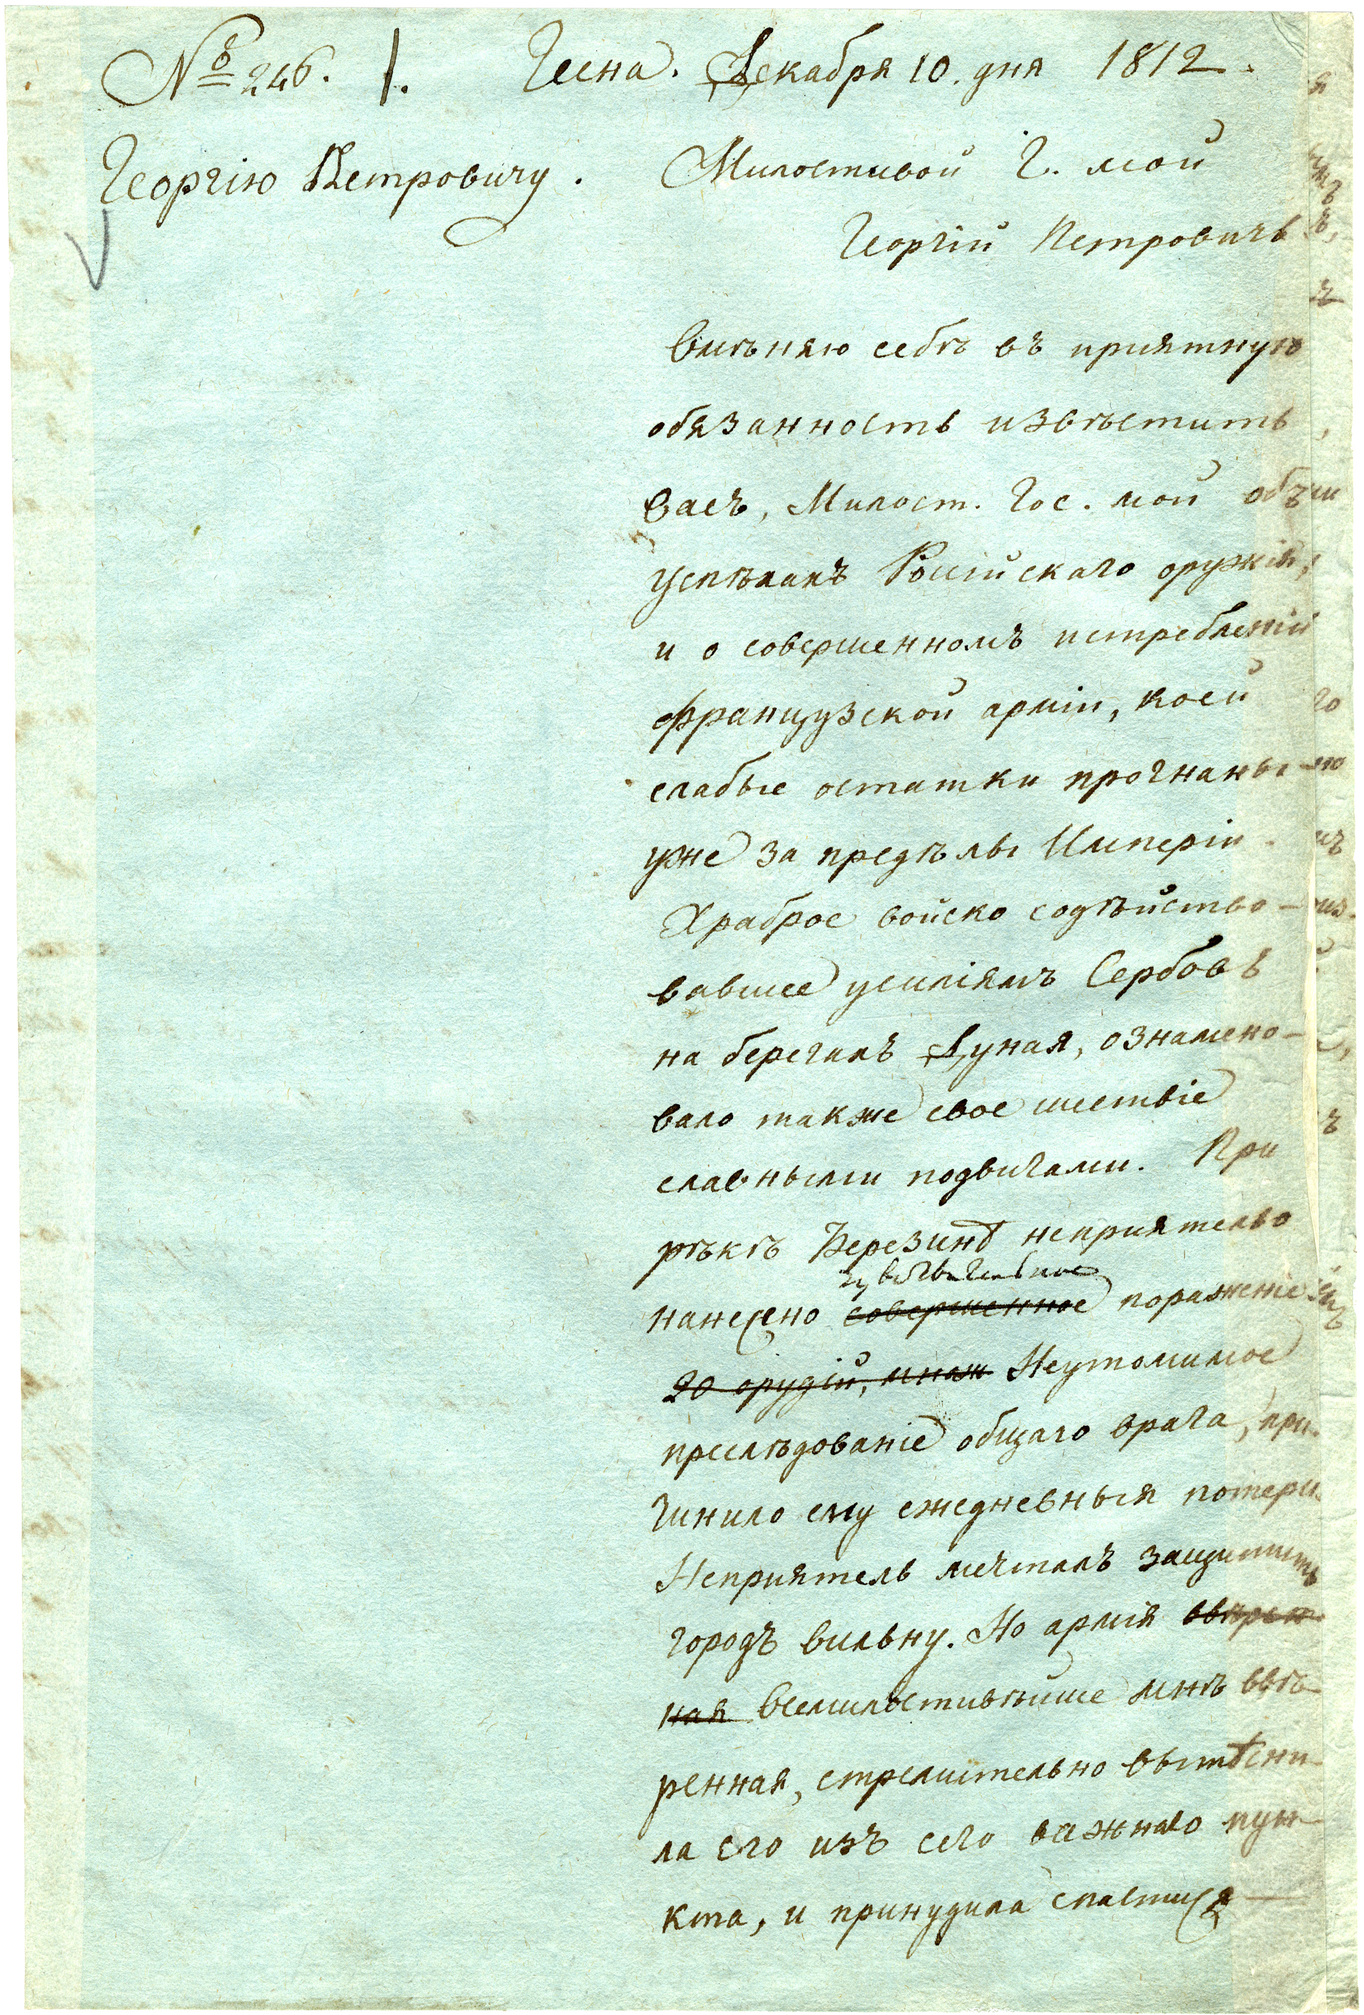 № 246. 1. Гесна. Декабря 10. дня 1812.
Георгію Петровичу.
Милостивой Г. мой
Георгій Петровичь
Вмѣняю себѣ въ приятную
обязанность извѣстить
Васъ, Милост. Гос. мой объ
успѣхахъ Россійскаго оружія,
и о совершенномъ истребленіи
французской арміи, коей
слабые остатки прогнаны
уже за предѣлы Имперіи.
Храброе войско содѣйство-
вавшее усиліямъ Сербовъ
на берегахъ Дуная, ознамено-
вало также свое шествіе
славными подвигами. При
рѣкѣ Березинѣ неприятелю
чувствительное
нанесено совершенное пораженіе
20 орудій, множ Неутомимое
преслѣдованіе общаго врага, при-
чинило ему ежедневныя потери.
Неприятель мечталъ защитить
городъ Вильну. Но армія ввѣрен-
ная Всемилостивѣйше мнѣ ввѣ-
ренная, стремительно вытѣсни-
ла его изъ сего важнаго пун-
кта, и принудила спастися